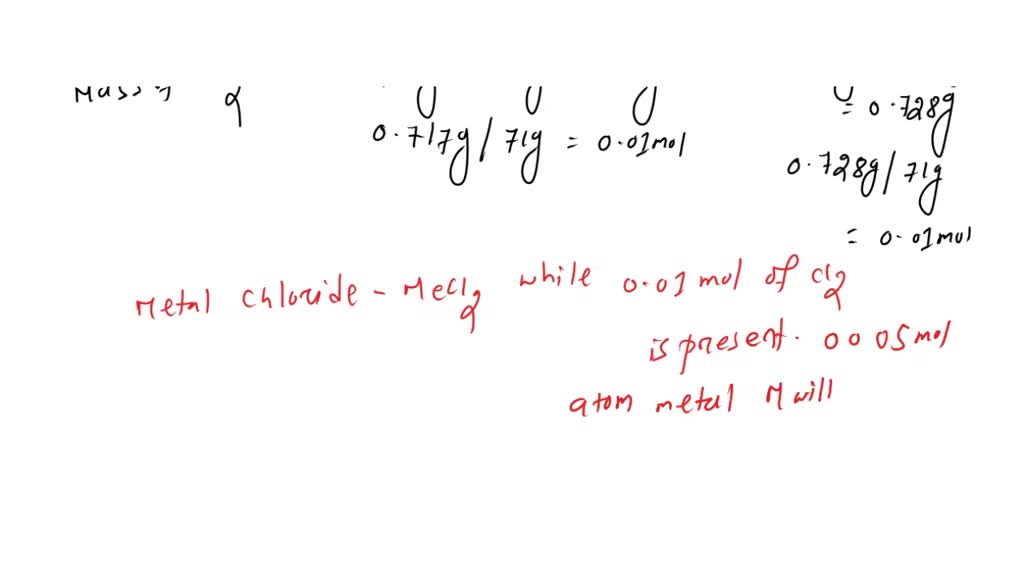 0.728g
=
0.717g / 71g = 0.01mol
0.728g / 71g
= 0.01mol
Metal chloride - MeCl2 while 0.01 mol of Cl2
is present. 0 0 05 mol
atom metal M will